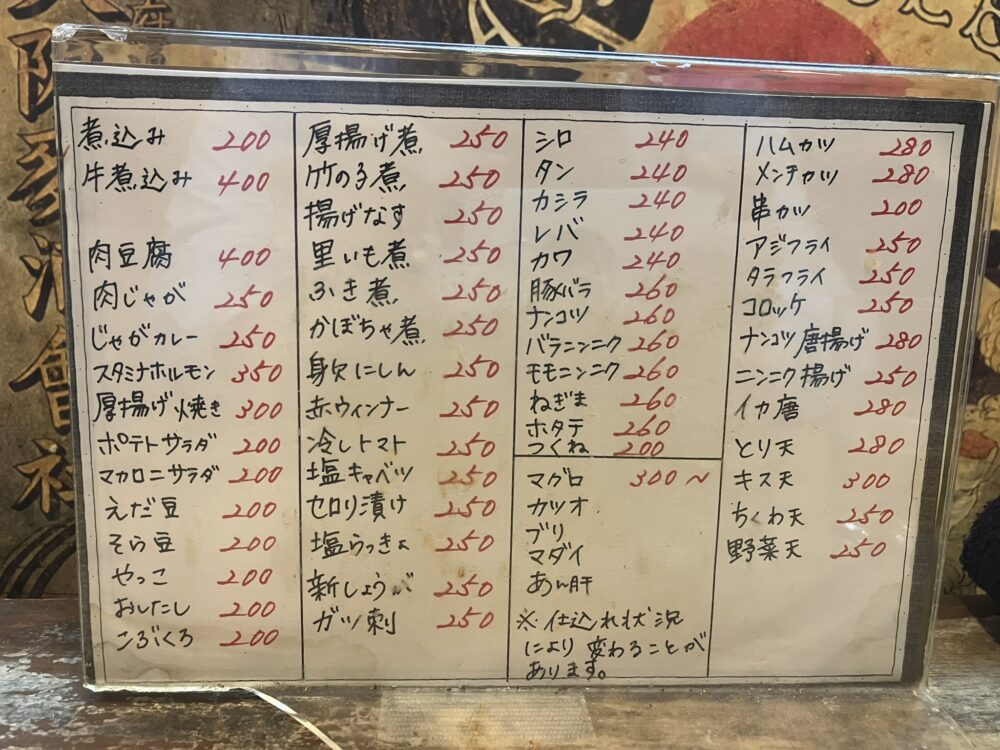 煮込み 200
牛煮込み 400
肉豆腐 400
肉じゃが 250
じゃがカレー 250
スタミナホルモン 350
厚揚げ焼き 300
ポテトサラダ 200
マカロニサラダ 200
えだ豆 200
そら豆 200
やっこ 200
おしたし 200
こぶくろ 200
厚揚げ煮 250
竹の子煮 250
揚げなす 250
里いも煮 250
ふき煮 250
かぼちゃ煮 250
身欠にしん 250
赤ウィンナー 250
冷しトマト 250
塩キャベツ 250
セロリ漬け 250
塩らっきょ 250
新しょうが 250
ガツ刺 250
シロ 240
タン 240
カシラ 240
レバ 240
カワ 240
豚バラ 260
ナンコツ 260
バラニンニク 260
モモニンニク 260
ねぎま 260
ホタテ 260
つくね 200
マグロ 300～
カツオ
ブリ
マダイ
あん肝
※仕込れ状況
により変わることが
あります。
ハムカツ 280
メンチカツ 280
串カツ 200
アジフライ 250
タラフライ 250
コロッケ 250
ナンコツ唐揚げ 280
ニンニク揚げ 250
イカ唐 280
とり天 280
キス天 300
ちくわ天 250
野菜天 250